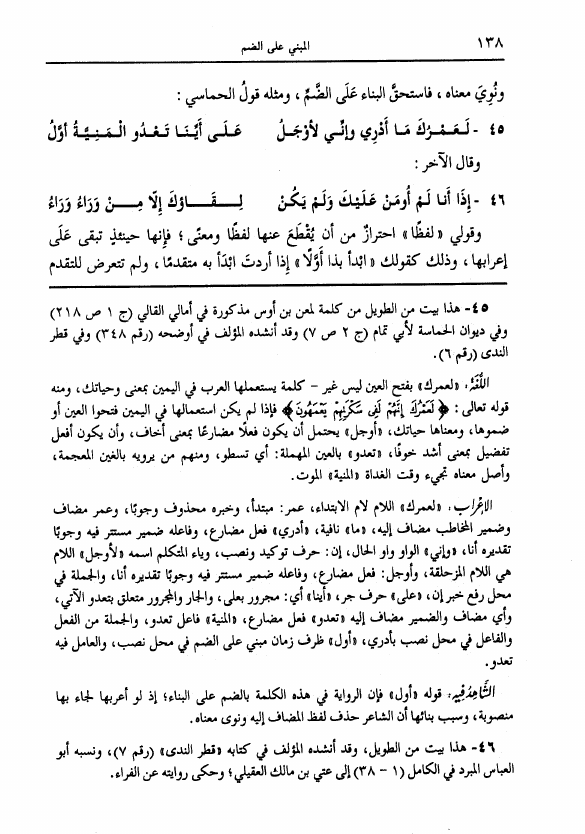 ١٣٨ المبني على الضم
ونُوِيَ معناه ، فاستحقَّ البناء عَلَى الضَّمِّ ، ومثله قولُ الحماسي :
٤٥ -لَعَمْرُكَ مَا أَدْرِي وإنِّي لأوْجَلُ عَلَى أَيِّنَا تَعْدُو الْمَنِيَّةُ أوَّلُ
وقال الآخر :
٤٦ -إذَا أنا لَمْ أُومَنْ عَلَيْكَ وَلَمْ يَكُنْ لِقَاؤكَ إلّا مِنْ وَرَاءُ وَرَاءُ
وقولي «لفظًا» احترازٌ من أن يُقْطَعَ عنها لفظًا ومعنًى ؛ فإنها حينئذٍ تبقى عَلَى
إعرابها ، وذلك كقولك «ابْدأ بذا أوَّلًا» إذا أردتَ ابْدَأ به متقدمًا ، ولم تتعرض للتقدم
٤٥- هذا بيت من الطويل من كلمة لمعن بن أوس مذكورة في أمالي القالي (ج ١ ص ٢١٨)
وفي ديوان الحماسة لأبي تمام (ج ٢ ص ٧) وقد أنشده المؤلف في أوضحه (رقم ٣٤٨) وفي قطر
الندى (رقم ٦).
اللُّغَةُ: «لعمرك» بفتح العين ليس غير - كلمة يستعملها العرب في اليمين بمعنى وحياتك، ومنه
قوله تعالى: ﴿لَعَمْرُكَ إِنَّهُمْ لَفِي سَكْرَتِهِمْ يَعْمَهُونَ﴾ فإذا لم يكن استعمالها في اليمين فتحوا العين أو
ضموها، ومعناها حياتك، «أوجل» يحتمل أن يكون فعلًا مضارعًا بمعنى أخاف، وأن يكون أفعل
تفضيل بمعنى أشد خوفًا، «تعدو» بالعين المهملة: أي تسطو، ومنهم من يرويه بالغين المعجمة،
وأصل معناه تجيء وقت الغداة «المنية» الموت.
الإعراب: «لعمرك» اللام لام الابتداء، عمر: مبتدأ، وخبره محذوف وجوبًا، وعمر مضاف
وضمير المخاطب مضاف إليه، «ما» نافية، «أدري» فعل مضارع، وفاعله ضمير مستتر فيه وجوبًا
تقديره أنا، «وإني» الواو واو الحال، إن: حرف توكيد ونصب، وياء المتكلم اسمه «لأوجل» اللام
هي اللام المزحلقة، وأوجل: فعل مضارع، وفاعله ضمير مستتر فيه وجوبًا تقديره أنا، والجملة في
محل رفع خبر إن، «على» حرف جر، «أينا» أي: مجرور بعلى، والجار والمجرور متعلق بتعدو الآتي،
وأي مضاف والضمير مضاف إليه «تعدو» فعل مضارع، «المنية» فاعل تعدو، والجملة من الفعل
والفاعل في محل نصب بأدري، «أول» ظرف زمان مبني على الضم في محل نصب، والعامل فيه
تعدو.
الشَّاهِدُ فِيهِ: قوله «أول» فإن الرواية في هذه الكلمة بالضم على البناء؛ إذ لو أعربها لجاء بها
منصوبة، وسبب بنائها أن الشاعر حذف لفظ المضاف إليه ونوى معناه.
٤٦- هذا بيت من الطويل، وقد أنشده المؤلف في كتابه «قطر الندى» (رقم ٧)، ونسبه أبو
العباس المبرد في الكامل (١ - ٣٨) إلى عتي بن مالك العقيلي؛ وحكى روايته عن الفراء.